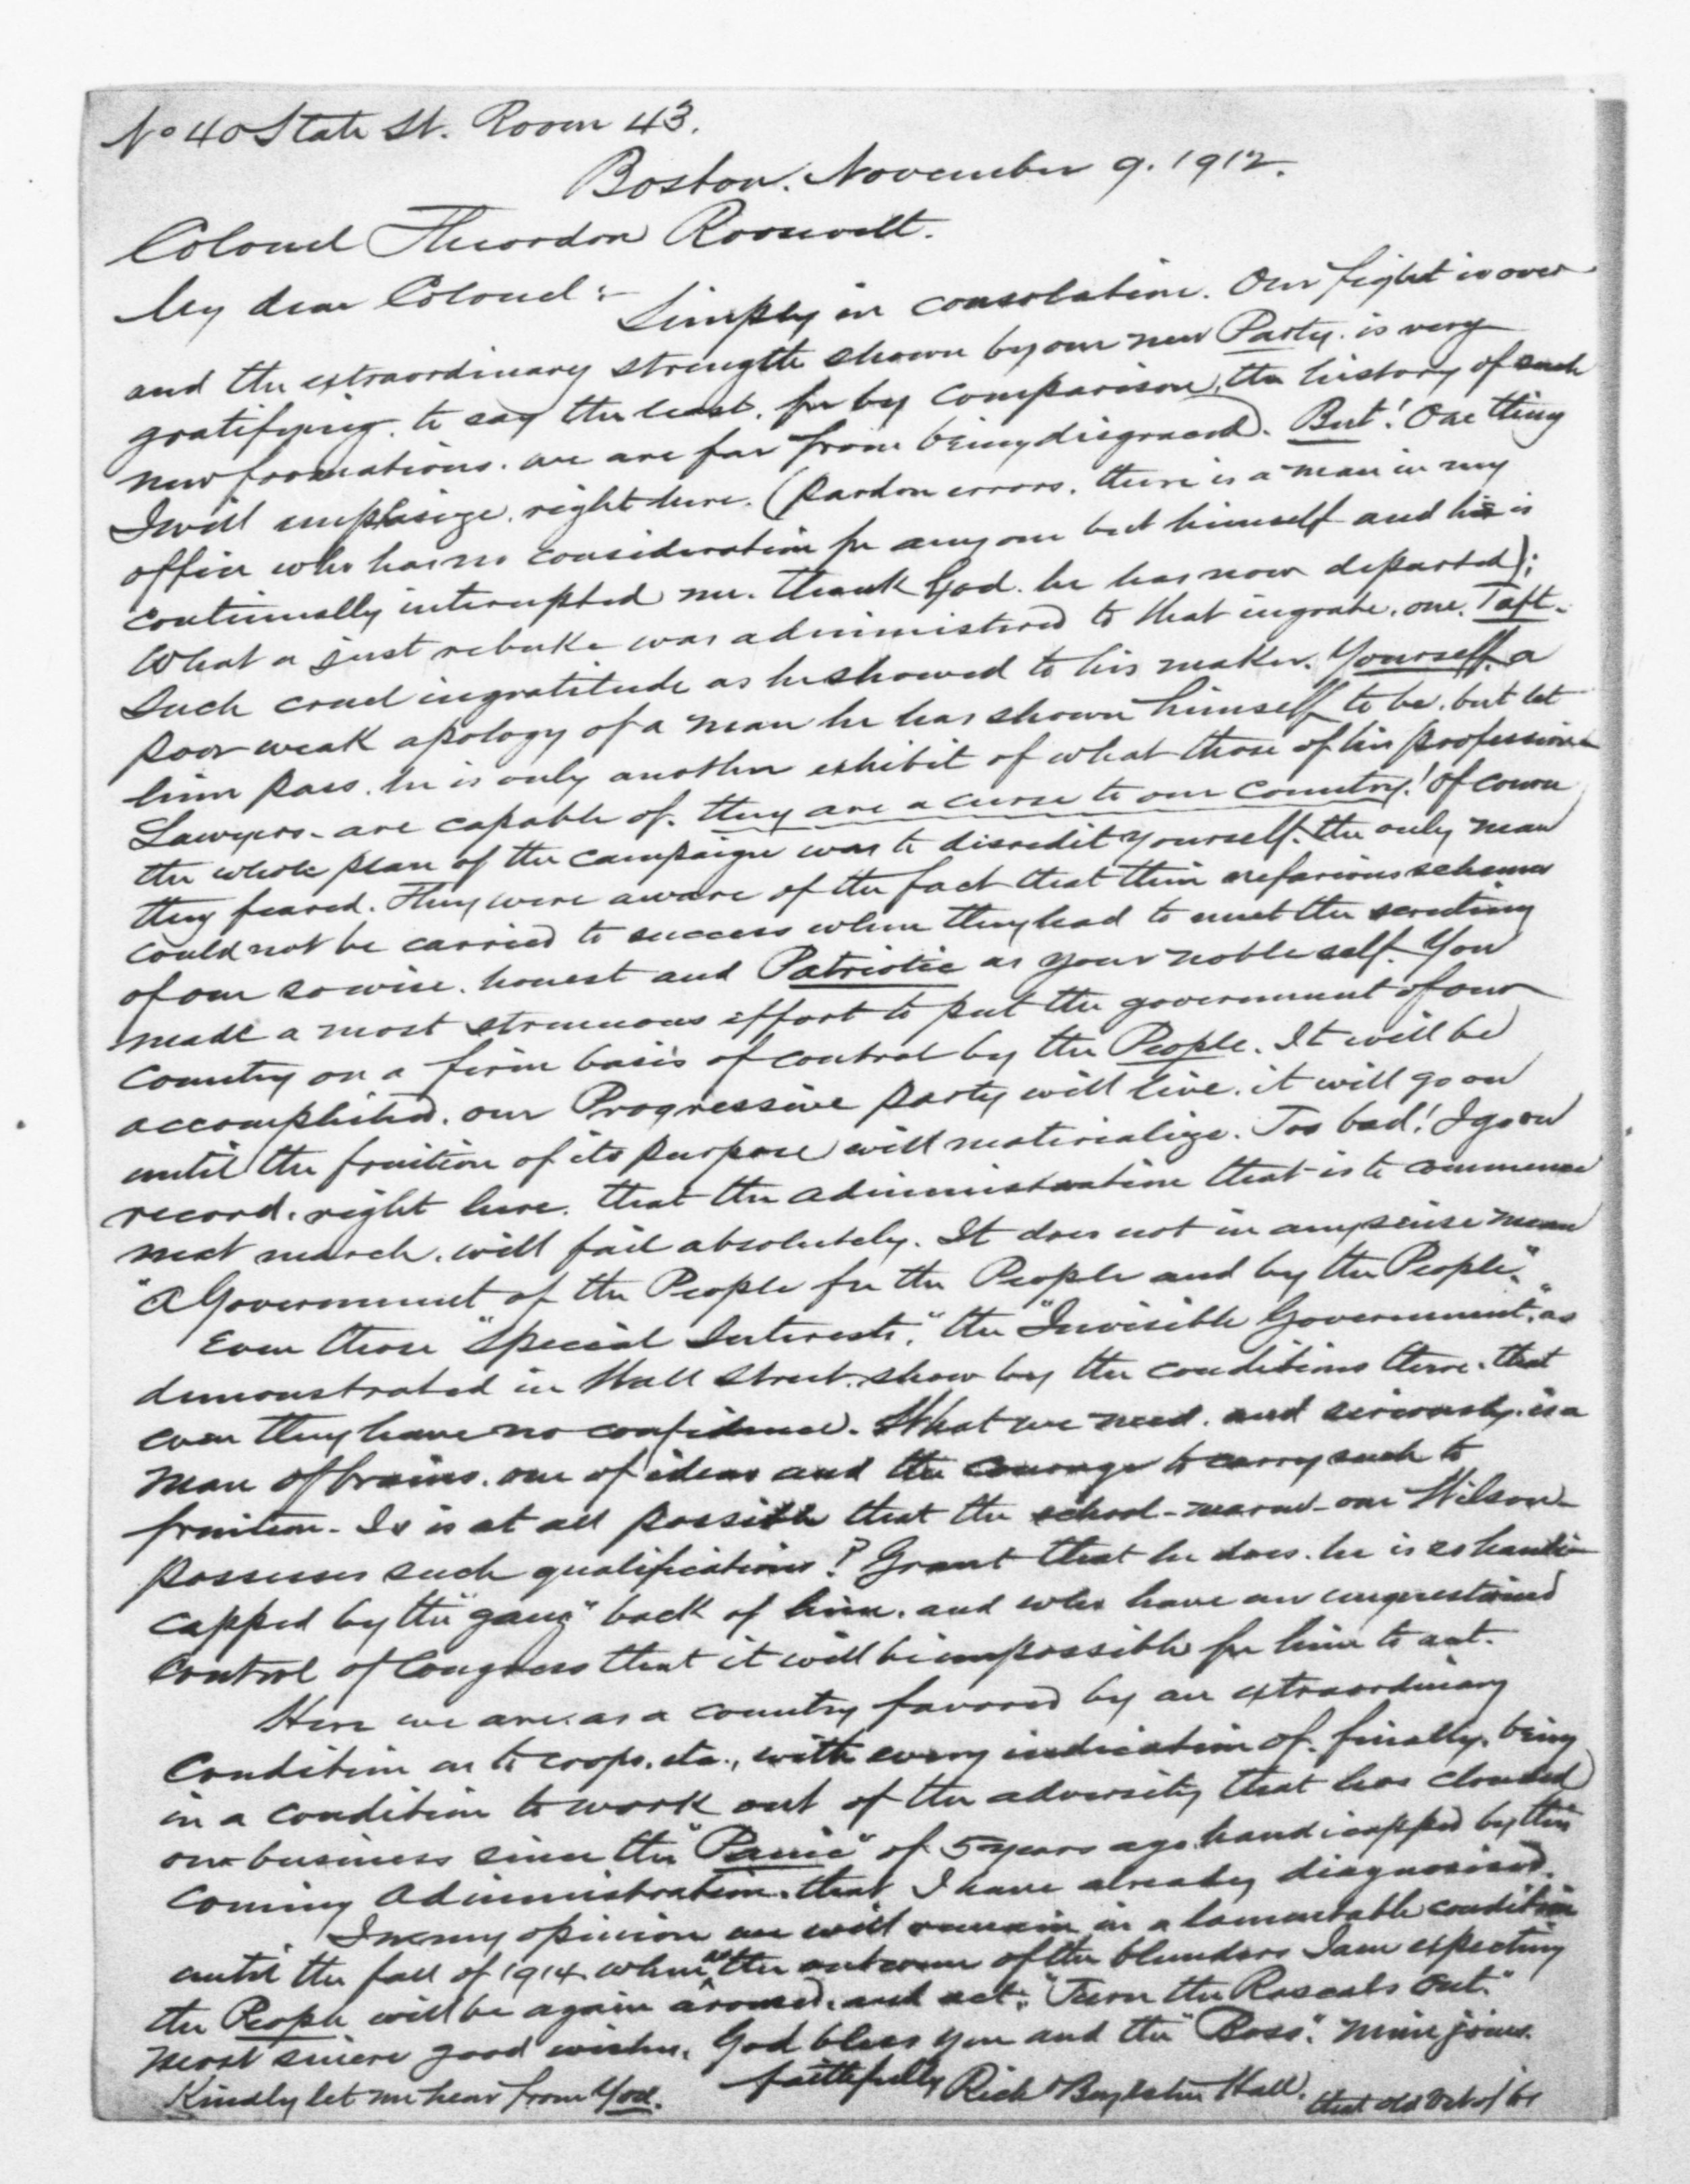 No 40 State St. Room 43.
Boston. November 9. 1912.
Colonel Theordore Roosevelt.
My dear Colonel:- Simply in consolation. Our fight is over
and the extraordinary strength shown by our new Party. is very
gratifying. to say the least. for by comparison, the history of such
new formations. we are far from being disgraced. But! One thing
I will emphasize. right here. (pardon errors. there is a man in my
office who has no consideration for anyone but himself and his is
continually interrupted me. thank God. he has now departed);
What a just rebuke was administered to that ingrate. one. Taft.
Such cruel ingratitude as he showed to his maker. Yourself. a
poor weak apology of a man he has shown himself to be. but let
him pass. he is only another exhibit of what those of his profession-
Lawyers- are capable of. they are a curse to our country! Of course
the whole plan of the campaign was to discredit yourself. the only man
they feared. They were aware of the fact that their nefarious schemes
could not be carried to success when they had to meet the scrutiny
of one so wise. honest and Patriotic as your noble self. You
made a most strenuous effort to put the government of our
country on a firm basis of control by the People. It will be
accomplished. our Progressive party will live. it will go on
until the fruition of its purpose will materialize. Too bad! I go on
record. right here. that the administration that is to commence
next march. will fail absolutely. It does not in any sense mean
"A Government of the People for the People and by the People."
Even those "Special Interests," the "Invisible Government", as
demonstrated in Wall Street. show by the conditions there. that
even they have no confidence. What we need. and seriously. is a
man of brains. one of ideas and the courage to carry such to
fruition- Is is at all possible that the school-marm- one Wilson-
possesses such qualifications? Grant that he does. he is so handi-
capped by the "gang" back of him. and who have an
control of Congress that it will be impossible for him to act.
Here we are. as a country favored by an extraordinary
condition as to crops. etc., with every indication of. finally. being
in a condition to work out of the adversity that has clouded
our business since the "Panic" of 5 years ago. handicapped by this
coming administration. that I have already diagnosised.
In my opinion we will remain in a lamentable condition
until the fall of 1914. when as the outcome of the blunders I am expecting
the People will be again aroused. and act. "Turn the Rascals Out."
most sincere good wishes. God bless you and the "Boss". mine joins.
Kindly let me hear from You. faithfully Rich Boylston Hall. that old vet of 61